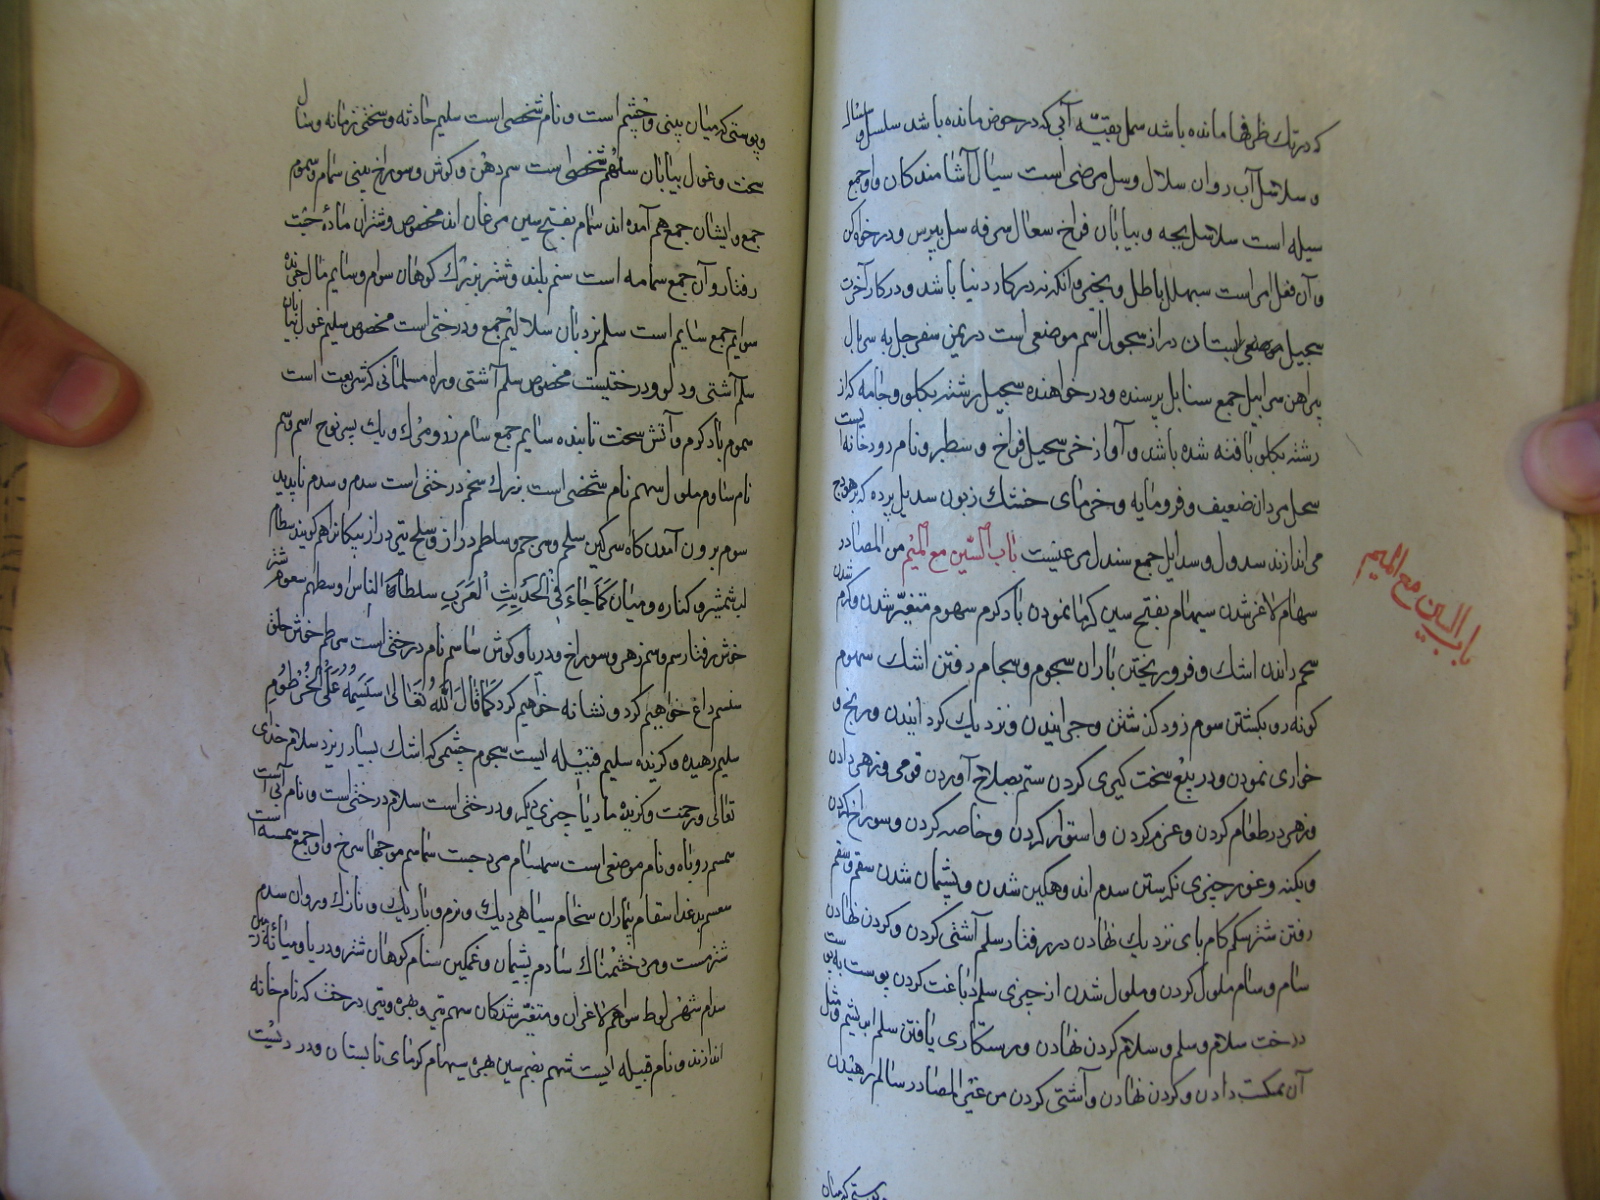 که در تک ظرفها مانده باشد سمل بقیّه آبی که در حوض مانده باشد سلسل و سلسال
و سلاسل آب روان سلال و سل مرضی است سیال آشامندکان واو جمع
سیله است سلاسل بجه و بیابان فراخ سعال سرفه سل بپرس و درخواه کن
و آن فعل امر است سبهلل باطل و بجیزی وانکه نه در کار دنیا باشد و در کار آخرت
سجیل موضعی است دراز سجول اسم موضعی است در یمن سفرجل به سربال
پیراهن سرابیل جمع سنابل پرسنده و درخواهنده سحیل رشته یکلو و جامه که از
رشته یکلو بافته شده باشد و آواز خر سحیل فراخ و سطبر و نام رودخانه است
سخل مردان ضعیف و فرومایه و خرمای خشک زبون سدیل پرده که بر هودج
می اندازند سدول و سدایل جمع سندل مرغیست باب السّین مع المیم من المصادر
باب السین مع المیم
سهام لاغر شدن سیهام بفتح سین کرما نمودن باد کرم سهوم متغیّر شدن و کرم شدن
سجم راندن اشک و فرو ریختن باران سجوم و سجام رفتن اشک سهوم
کونه رو بکشتن سوم زود کذشتن و چرانیدن و نزدیک کردانیدن و رنج و
خواری نمودن و در بیع سخت کیری کردن سم بصلاح آوردن قومی و زهر دادن
و زهر در طعام کردن و عزم کردن و استوار کردن و خاصه کردن و سوراخ کردن
و بکنه و غور چیزی نکرستن سدم اندوهکین شدن و پشیمان شدن سقم و سقم
رفتن شتر سکم کام بای نزدیک نهادن در رفتار سلم آشتی کردن و کردن نهادن
سام و سآم ملول کردن و ملول شدن از چیزی سلم دباغت کردن پوست به پوست
درخت سلام و سلم و سلام کردن نهادن و رستکاری یافتن سلم ابریشم و مثل
آن بمکت دادن و کردن نهادن و آشتی کردن من غیر المصادر سالم رهیدن
و پوستی که میان
و پوستی که میان بینی و چشم است و نام شخصی است سلیم حادثه و سختی زمانه و سال
سخت و غول بیابان سلهم شخصی است سم دهن و کوش و سوراخ بینی سمام و سموم
جمع و ایشان جمع هم آمده اند سمام بفتح سین مرغان اند مخصوص و شتران ماده چست
رفتار و آن جمع سمامه است سنم بلند و شتر بزرک کوهان سوام و سایم مال چرنده
سوایم جمع سایم است سلم نردبان سلالیم جمع و درختی است مخصوص سلیم غول بیابان
سلم آشتی و دلو و درختیست مخصوص سلم آشتی و راه مسلمانی که شریعت است
سموم باد کرم و آتش سخت تابنده سمایم جمع سام زر و مرک و یک پسر نوح اسم و سم
نام سئاوم ملول سهم نام شخصی است بزرک سخم درختی است سدم و سدم ناپدید
سوم برون آمدن کاه سرکین سلجم و سرجم و سلطم دراز و سلجم تیر دراز پیکانرا هم کویند سطام
لب شمشیر و کناره و میان کَمَا جَاءَ فِی الْحَدِیثِ الْعَرَبُ سطام الناس و سطهم سعوم شتر
خوش رفتار سم و سم زهر و سوراخ و دریا و کوش ساسم نام درختی است سرطم خوش حلق
سنسم داغ خواهیم کرد و نشانه خواهیم کرد کَمَا قَالَ اللّٰهُ تَعَالٰی سَنَسِمُهُ عَلَی الْخُرْطُومِ
سلیم رهیده و کزیده سلیم قبیله ایست سجوم چشمی که اشک بسیار ریزد سلام خدای
تعالی و رحمت و کزیدۀ مار یا چیزی دیگر و درختی است سلام درختی است و نام آبی است
سمسم روباه و نام موضعی است سمسام مرد چست سماسم مورچهای سرخ و او جمع سمسمه است
بد غذا سقام بیماران سخام سیاهی دیک و نرم و باریک و نازک و روان سدم
شتر مست و مرد خشمناک سادم پشیمان و غمکین سنام کوهان شتر و دریا و میانۀ زمین
سدوم شهر لوط سواهم لاغران و متغیّر شدکان سهم تیر و بهره و تیر درخت که نام خانه
اندازند و نام قبیله ایست سهم بضم سین بهره سیهام کرمای تابستان و در دست